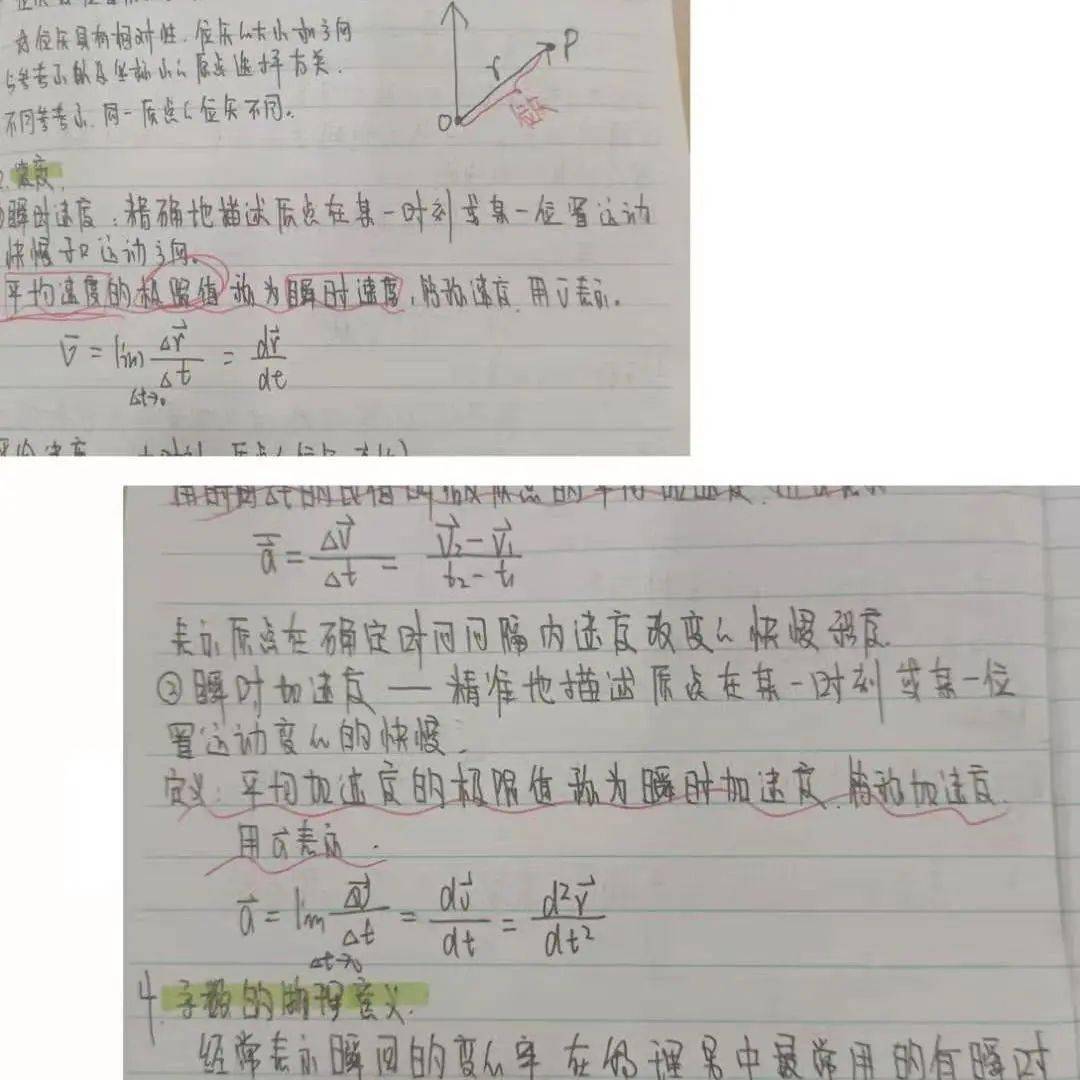 为位矢具有相对性.位矢的大小和方向
与参考系的及坐标系的原点选择有关.
不同参考系.同一质点的位矢不同。
O r P 位矢
2.速度.
①瞬时速度:精确地描述质点在某一时刻或某一位置运动
快慢和运动方向。
平均速度的极限值称为瞬时速度,简称速度.用v⃗表示。
v⃗ = lim Δt→0 Δr⃗/Δt = dr⃗/dt
a⃗ = Δv⃗/Δt = (v⃗₂-v⃗₁)/(t₂-t₁)
表示质点在确定时间间隔内速度改变的快慢程度.
②瞬时加速度 — 精准地描述质点在某一时刻或某一位
置运动变化的快慢.
定义:平均加速度的极限值称为瞬时加速度.简称加速度.
用a⃗表示.
a⃗ = lim Δt→0 Δv⃗/Δt = dv⃗/dt = d²r⃗/dt²
4.导数的物理意义.
经常表示瞬间的变化率在物理学中最常用的有瞬时